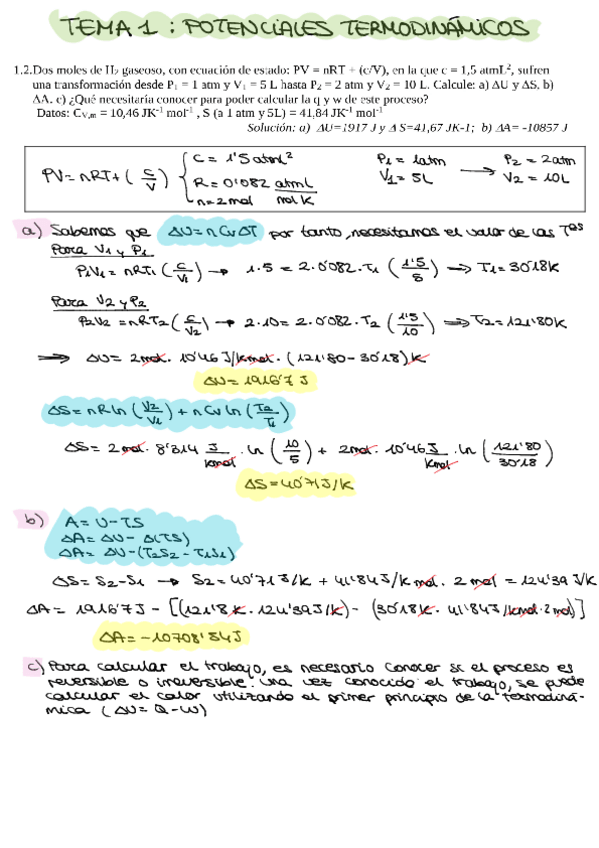 TEMA 1 : POTENCIALES TERMODINÁMICOS
1.2.Dos moles de H₂ gaseoso, con ecuación de estado: PV = nRT + (c/V), en la que c = 1,5 atmL², sufren
una transformación desde P₁ = 1 atm y V₁ = 5 L hasta P₂ = 2 atm y V₂ = 10 L. Calcule: a) ΔU y ΔS. b)
ΔA. c) ¿Qué necesitaría conocer para poder calcular la q y w de este proceso?
Datos: C_V,m = 10,46 JK⁻¹ mol⁻¹ , S (a 1 atm y 5L) = 41,84 JK⁻¹ mol⁻¹
Solución: a) ΔU=1917 J y Δ S=41,67 JK-1; b) ΔA= -10857 J
PV= nRT+ (c/V) { C = 1'5 atml² P₁ = 1atm → P₂ = 2atm
R = 0'082 atml/molK V₁ = 5L V₂ = 10L
n = 2mol
a) Sabemos que ΔU= n Cv ΔT por tanto, necesitamos el valor de las Tªs
Para V₁ y P₁
P₁V₁ = nRT₁ (c/V₁) → 1·5 = 2·0'082·T₁ (1'5/5) → T₁= 30'18K
Para V₂ y P₂
P₂V₂ = nRT₂ (c/V₂) → 2·10 = 2·0'082·T₂ (1'5/10) → T₂= 121'80K
⇒ ΔU = 2mol · 10'46 J/kmol · (121'80 - 30'18)K
ΔU = 1916'7 J
ΔS = nR ln (V₂/V₁) + n Cv ln (T₂/T₁)
ΔS = 2 mol · 8'314 J/kmol · ln (10/5) + 2mol · 10'46 J/kmol · ln (121'80/30'18)
ΔS = 40'71 J/K
b) A = U - TS
ΔA = ΔU - Δ(TS)
ΔA = ΔU - (T₂S₂ - T₁S₁)
ΔS = S₂ - S₁ → S₂ = 40'71 J/K + 41'84 J/K mol · 2 mol = 124'39 J/K
ΔA = 1916'7 J - [(121'8 K · 124'39 J/K) - (30'18K · 41'84J/kmol·2mol)]
ΔA = -10708'54J
c) Para calcular el trabajo, es necesario conocer si el proceso es
reversible o irreversible. Una vez conocido el trabajo, se puede
calcular el calor utilizando el primer principio de la termodiná-
mica (ΔU = Q - W)